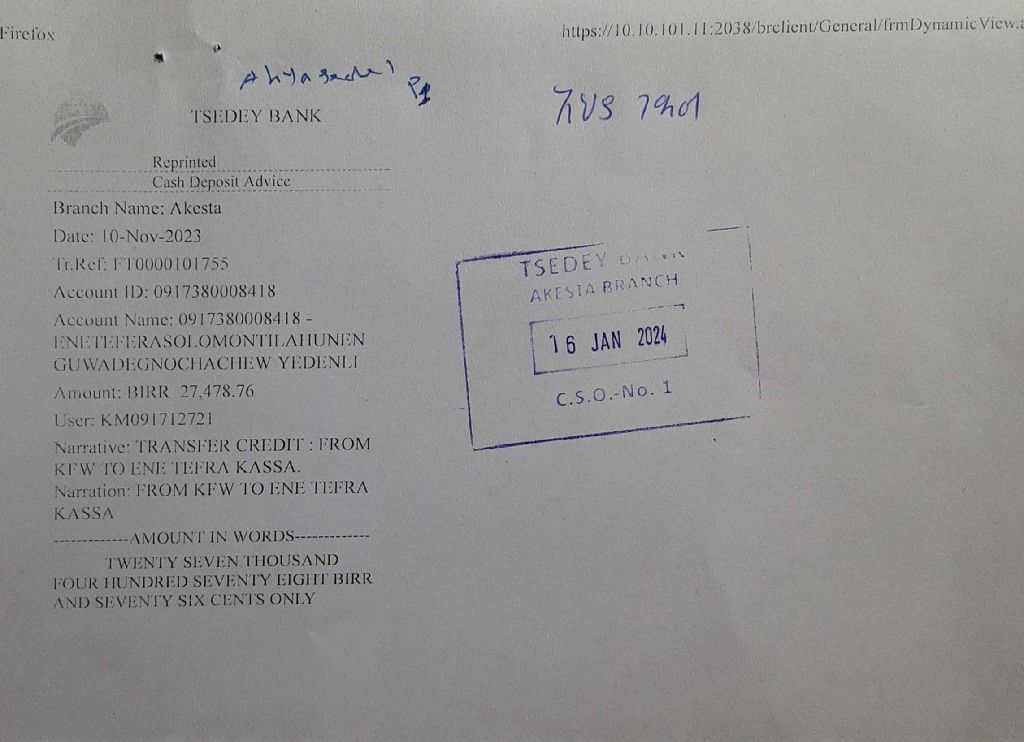 Firefox
https://10.10.101.11:2038/brclient/General/frmDynamicView.a
TSEDEY BANK
Reprinted
Cash Deposit Advice
Branch Name: Akesta
Date: 10-Nov-2023
Tr.Ref: FT0000101755
Account ID: 0917380008418
Account Name: 0917380008418 -
ENETEFERASOLOMONTILAHUNEN
GUWADEGNOCHACHEW YEDENLI
Amount: BIRR 27,478.76
User: KM091712721
Narrative: TRANSFER CREDIT : FROM
KFW TO ENE TEFRA KASSA.
Narration: FROM KFW TO ENE TEFRA
KASSA
-------------AMOUNT IN WORDS-------------
TWENTY SEVEN THOUSAND
FOUR HUNDRED SEVENTY EIGHT BIRR
AND SEVENTY SIX CENTS ONLY
TSEDEY
AKESTA BRANCH
16 JAN 2024
C.S.O.-No. 1